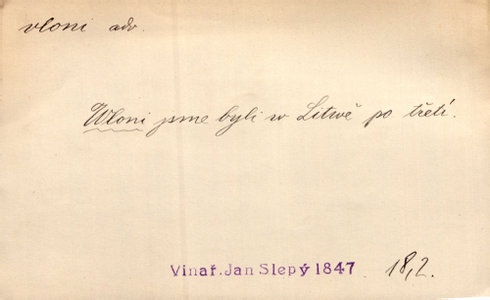 vloni adv.
Wloni jsme byli w Litwě po třetí.
Vinař. Jan Slepý 1847 18,2.